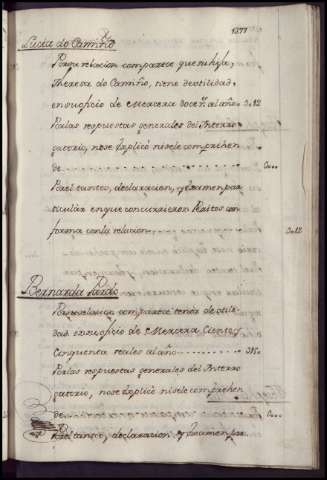 1377
Lucia do Camiño
Por su relacion comparece que su hija,
Theresa do Camiño, tiene de utilidad,
en su oficio de Mercera doz.tos al año 2U
Por las respuestas generales del Interro
gatorio, no se explicó ni se le comprehen
de 0
Por el tanteo, declaracion, y examen par
ticular en que concurrieron Peritos con
forma con la relacion
Bernarda Pardo
Por su relacion comparece tener de utili
dad en su oficio de Mercera Ciento, y
Cinquenta reales al año
Por las respuestas generales del Interro
gatorio, no se explicó ni se le comprehen
de 0
Por el tanteo, declaracion y examen par